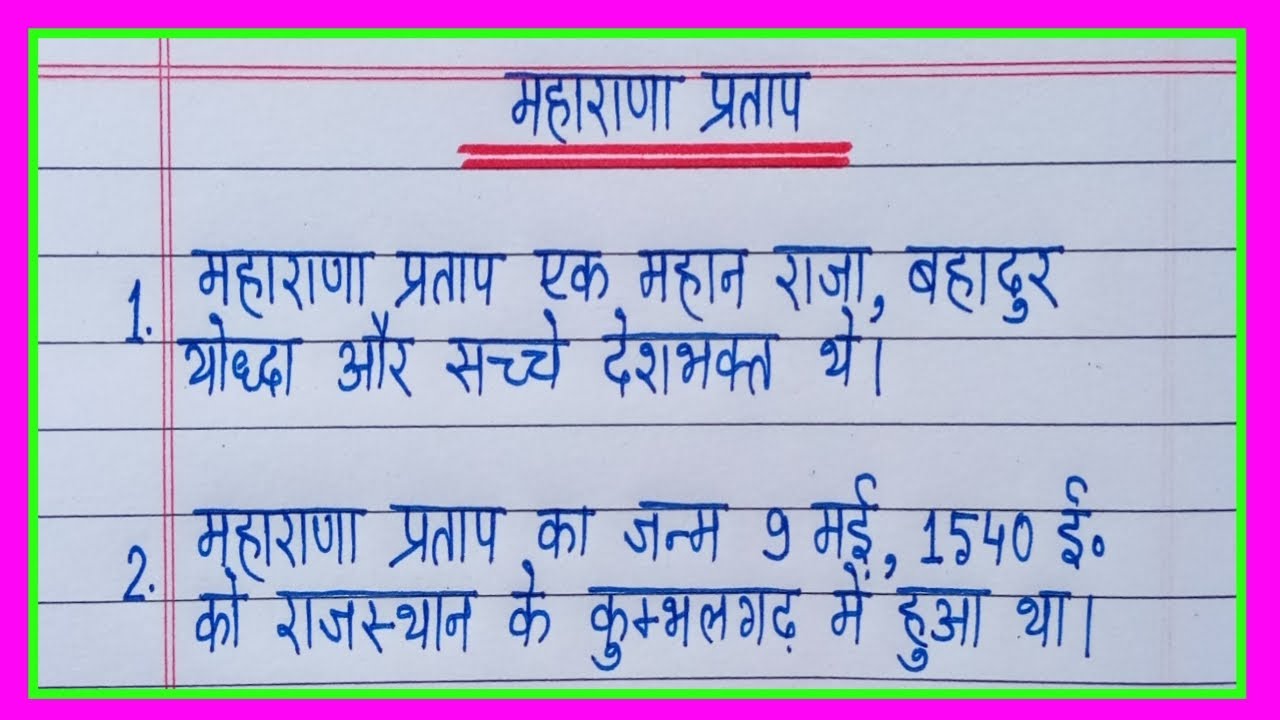 महाराणा प्रताप
1. महाराणा प्रताप एक महान राजा, बहादुर
योध्दा और सच्चे देशभक्त थे।
2. महाराणा प्रताप का जन्म 9 मई, 1540 ई॰
को राजस्थान के कुम्भलगढ़ में हुआ था।